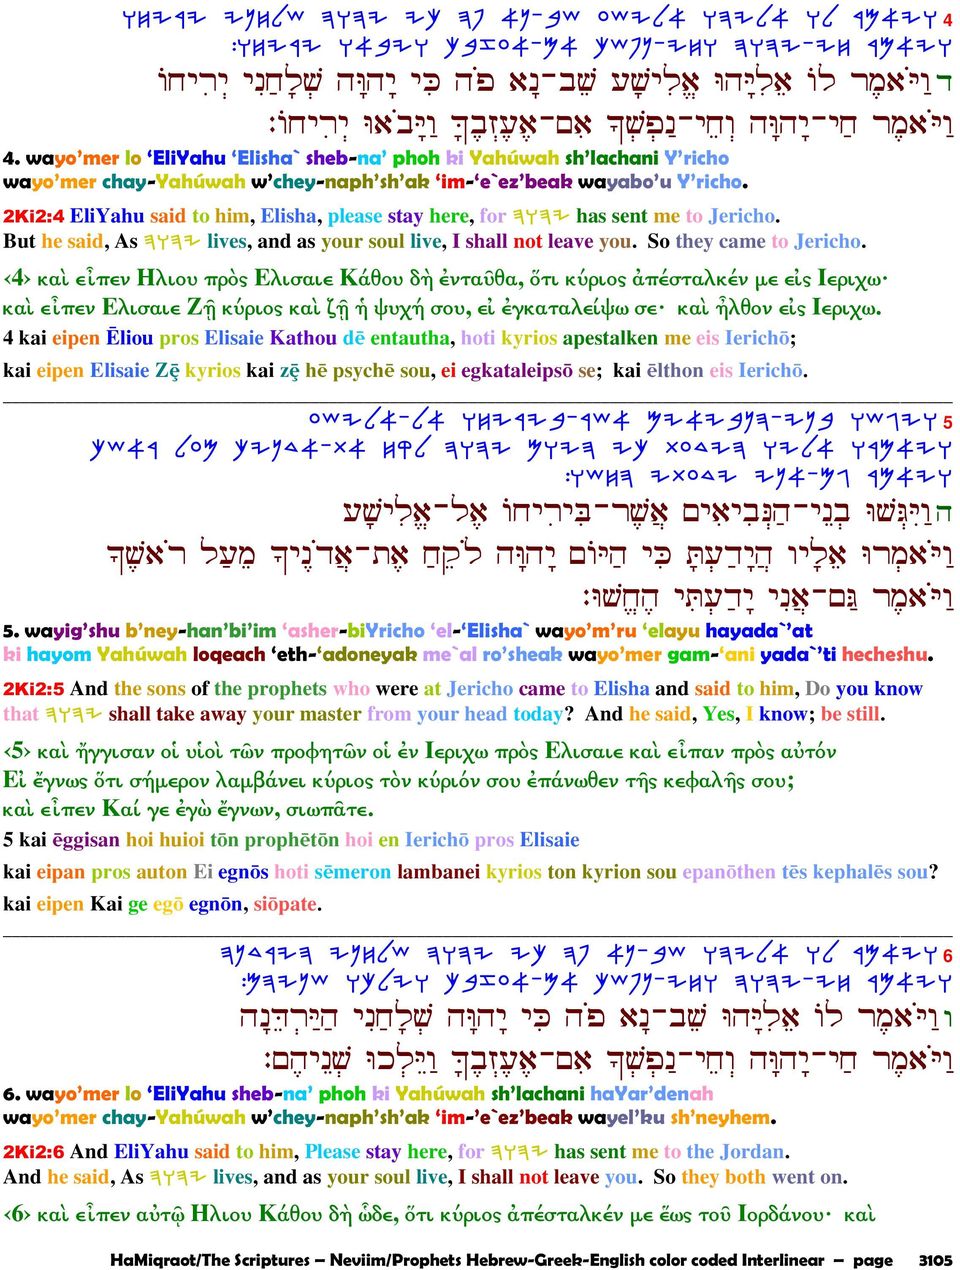 4 𐤅𐤉𐤀𐤌𐤓 𐤋𐤅 𐤀𐤋𐤉𐤄𐤅 𐤀𐤋𐤉𐤔𐤏 𐤔𐤁-𐤍𐤀 𐤐𐤄 𐤊𐤉 𐤉𐤄𐤅𐤄 𐤔𐤋𐤇𐤍𐤉 𐤉𐤓𐤉𐤇𐤅
𐤅𐤉𐤀𐤌𐤓 𐤇𐤉-𐤉𐤄𐤅𐤄 𐤅𐤇𐤉-𐤍𐤐𐤔𐤊 𐤀𐤌-𐤀𐤏𐤆𐤁𐤊 𐤅𐤉𐤁𐤀𐤅 𐤉𐤓𐤉𐤇𐤅:
ד וַיֹּאמֶר לוֹ אֵלִיָּהוּ אֱלִישָׁע שֵׁב־נָא פֹה כִּי יָהוּה שְׁלָחַנִי יְרִיחוֹ
וַיֹּאמֶר חַי־יָהוּה וְחֵי־נַפְשְׁךָ אִם־אֶעֶזְבֶךָּ וַיָּבֹאוּ יְרִיחוֹ:
4. wayo'mer lo 'EliYahu 'Elisha` sheb-na' phoh ki Yahúwah sh'lachani Y'richo
wayo'mer chay-Yahúwah w'chey-naph'sh'ak 'im-'e`ez'beak wayabo'u Y'richo.
2Ki2:4 EliYahu said to him, Elisha, please stay here, for 𐤉𐤄𐤅𐤄 has sent me to Jericho.
But he said, As 𐤉𐤄𐤅𐤄 lives, and as your soul live, I shall not leave you. So they came to Jericho.
‹4› καὶ εἶπεν Ηλιου πρὸς Ελισαιε Κάθου δὴ ἐνταῦθα, ὅτι κύριος ἀπέσταλκέν με εἰς Ιεριχω·
καὶ εἶπεν Ελισαιε Ζῇ κύριος καὶ ζῇ ἡ ψυχή σου, εἰ ἐγκαταλείψω σε· καὶ ἦλθον εἰς Ιεριχω.
4 kai eipen Ēliou pros Elisaie Kathou dē entautha, hoti kyrios apestalken me eis Ierichō;
kai eipen Elisaie Zȩ̄ kyrios kai zȩ̄ hē psychē sou, ei egkataleipsō se; kai ēlthon eis Ierichō.
5 𐤅𐤉𐤂𐤔𐤅 𐤁𐤍𐤉-𐤄𐤍𐤁𐤉𐤀𐤉𐤌 𐤀𐤔𐤓-𐤁𐤉𐤓𐤉𐤇𐤅 𐤀𐤋-𐤀𐤋𐤉𐤔𐤏
𐤅𐤉𐤀𐤌𐤓𐤅 𐤀𐤋𐤉𐤅 𐤄𐤉𐤃𐤏𐤕 𐤊𐤉 𐤄𐤉𐤅𐤌 𐤉𐤄𐤅𐤄 𐤋𐤒𐤇 𐤀𐤕-𐤀𐤃𐤍𐤉𐤊 𐤌𐤏𐤋 𐤓𐤀𐤔𐤊
𐤅𐤉𐤀𐤌𐤓 𐤂𐤌-𐤀𐤍𐤉 𐤉𐤃𐤏𐤕𐤉 𐤄𐤇𐤔𐤅:
ה וַיִּגְּשׁוּ בְנֵי־הַנְּבִיאִים אֲשֶׁר־בִּירִיחוֹ אֶל־אֱלִישָׁע
וַיֹּאמְרוּ אֵלָיו הֲיָדַעְתָּ כִּי הַיּוֹם יָהוּה לֹקֵחַ אֶת־אֲדֹנֶיךָ מֵעַל רֹאשֶׁךָ
וַיֹּאמֶר גַּם־אֲנִי יָדַעְתִּי הֶחֱשׁוּ:
5. wayig'shu b'ney-han'bi'im 'asher-biYricho 'el-'Elisha` wayo'm'ru 'elayu hayada`'at
ki hayom Yahúwah loqeach 'eth-'adoneyak me`al ro'sheak wayo'mer gam-'ani yada`'ti hecheshu.
2Ki2:5 And the sons of the prophets who were at Jericho came to Elisha and said to him, Do you know
that 𐤉𐤄𐤅𐤄 shall take away your master from your head today? And he said, Yes, I know; be still.
‹5› καὶ ἤγγισαν οἱ υἱοὶ τῶν προφητῶν οἱ ἐν Ιεριχω πρὸς Ελισαιε καὶ εἶπαν πρὸς αὐτόν
Εἰ ἔγνως ὅτι σήμερον λαμβάνει κύριος τὸν κύριόν σου ἐπάνωθεν τῆς κεφαλῆς σου;
καὶ εἶπεν Καί γε ἐγὼ ἔγνων, σιωπᾶτε.
5 kai ēggisan hoi huioi tōn prophētōn hoi en Ierichō pros Elisaie
kai eipan pros auton Ei egnōs hoti sēmeron lambanei kyrios ton kyrion sou epanōthen tēs kephalēs sou?
kai eipen Kai ge egō egnōn, siōpate.
6 𐤅𐤉𐤀𐤌𐤓 𐤋𐤅 𐤀𐤋𐤉𐤄𐤅 𐤔𐤁-𐤍𐤀 𐤐𐤄 𐤊𐤉 𐤉𐤄𐤅𐤄 𐤔𐤋𐤇𐤍𐤉 𐤄𐤉𐤓𐤃𐤍𐤄
𐤅𐤉𐤀𐤌𐤓 𐤇𐤉-𐤉𐤄𐤅𐤄 𐤅𐤇𐤉-𐤍𐤐𐤔𐤊 𐤀𐤌-𐤀𐤏𐤆𐤁𐤊 𐤅𐤉𐤋𐤊𐤅 𐤔𐤍𐤉𐤄𐤌:
ו וַיֹּאמֶר לוֹ אֵלִיָּהוּ שֵׁב־נָא פֹה כִּי יָהוּה שְׁלָחַנִי הַיַּרְדֵּנָה
וַיֹּאמֶר חַי־יָהוּה וְחֵי־נַפְשְׁךָ אִם־אֶעֶזְבֶךָּ וַיֵּלְכוּ שְׁנֵיהֶם:
6. wayo'mer lo 'EliYahu sheb-na' phoh ki Yahúwah sh'lachani haYar'denah
wayo'mer chay-Yahúwah w'chey-naph'sh'ak 'im-'e`ez'beak wayel'ku sh'neyhem.
2Ki2:6 And EliYahu said to him, Please stay here, for 𐤉𐤄𐤅𐤄 has sent me to the Jordan.
And he said, As 𐤉𐤄𐤅𐤄 lives, and as your soul live, I shall not leave you. So they both went on.
‹6› καὶ εἶπεν αὐτῷ Ηλιου Κάθου δὴ ὧδε, ὅτι κύριος ἀπέσταλκέν με ἕως τοῦ Ιορδάνου· καὶ
HaMiqraot/The Scriptures – Neviim/Prophets Hebrew-Greek-English color coded Interlinear – page 3105